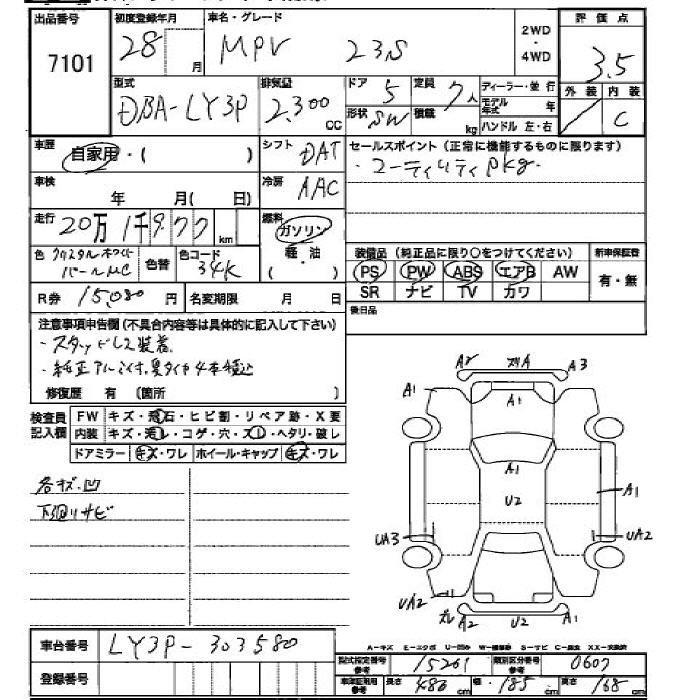 出品番号 初度登録年月 車名・グレード 2WD・4WD 評価点
7101 28 月 MPV 23S 3.5
型式 排気量 ドア 5 定員 7人 ディーラー・並行 外装 内装
DBA-LY3P 2,300 CC 形状 SW 積載 kg モデル年式 年 C
ハンドル 左・右
車歴 自家用・( ) シフト DAT セールスポイント(正常に機能するものに限ります)
・コーティリティpkg.
車検 年 月( 日) 冷房 AAC
走行 20万1千977 km 燃料 ガソリン
軽・油
( )
色 クリスタルホワイトパールMC 色替 色コード 34K
装備品(純正品に限り○をつけてください) 新車保証書
PS PW ABS エアB AW 有・無
SR ナビ TV カワ
R券 15,080 円 名変期限 月 日
後日品
注意事項申告欄(不具合内容等は具体的に記入して下さい)
・スタッドレス装着
・純正アルミ付夏タイヤ4本積込
修復歴 有 〔箇所 〕
検査員記入欄 FW キズ・飛石・ヒビ割・リペア跡・X要
内装 キズ・汚レ・コゲ・穴・スレ・ヘタリ・破レ
ドアミラー キズ・ワレ ホイール・キャップ キズ・ワレ
各キズ・凹
下廻りサビ
A2 A A3
A1 A1
A1
U2 A1
UA3 UA2
UA2 A2 U2 A1
車台番号 LY3P-303580
登録番号
A-キズ E-エクボ U-凹み W-補修跡 S-サビ C-腐食 XX-交換済
型式指定番号 参考 15261 類別区分番号 参考 0607
車庫証明用 参考 長さ 486 cm 幅 185 cm 高さ 168 cm